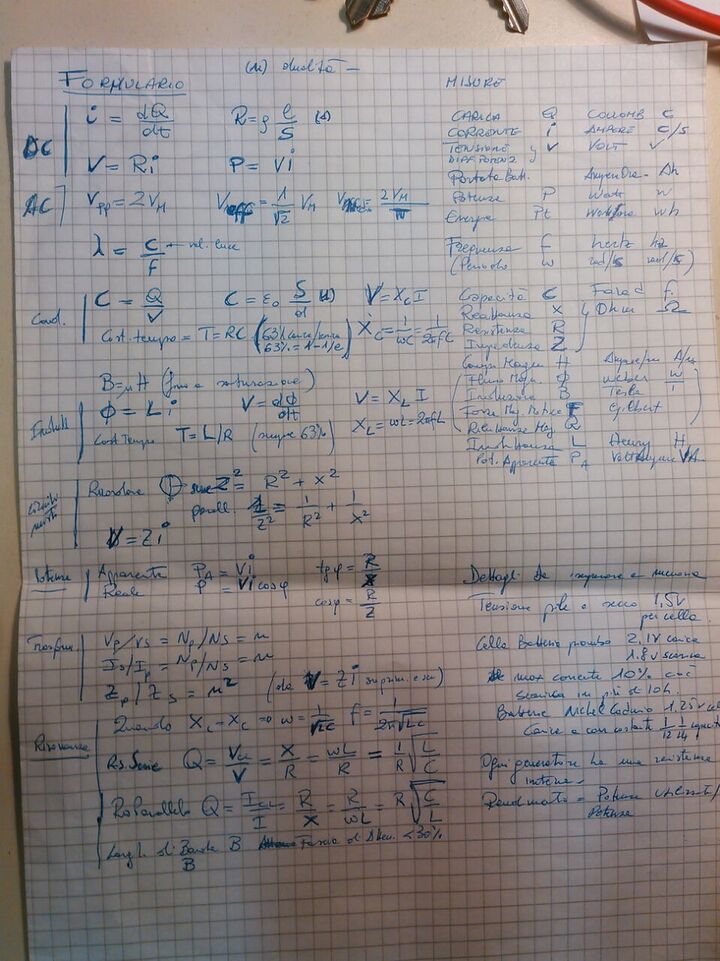 FORMULARIO
DC
i = dQ/dt R = ρ l/S
V = Ri P = Vi
AC
Vpp = 2VM Veff = 1/√2 VM = 2VM/π
λ = C/f vel. luce
Cond.
C = Q/V C = ε0 S/d V = XC I
Cost. tempo = T = RC (63% 63% = 1-1/e) XC = 1/ωC = 1/2πfC
B = μH (fino a saturazione)
Φ = Li V = dΦ/dt V = XL I
Cost Tempo T = L/R (sempre 63%) XL = ωL = 2πfL
Z² = R² + X²
parall. 1/Z² = 1/R² + 1/X²
V = Zi
Potenze
Apparente PA = Vi tgφ = R/X
Reale P = Vi cosφ cosφ = R/Z
Trasform
Vp/Vs = Np/Ns = n
Is/Ip = Np/Ns = n
Zp/Zs = n² (da V = Zi
Risonanza
Quando XL = XC => ω = 1/√LC f = 1/2π√LC
Ris. Serie Q = /V = X/R = ωL/R = 1/R √L/C
Ris Parallelo Q = /I = R/X = R/ωL = R √C/L
Largh. di Banda B Fascia di <30%
B
MISURE
CARICA Q COULOMB C
CORRENTE i AMPERE C/S
TENSIONE V VOLT V
DIFF POTENZ
Portata Batt. Ah
Potenza P Watt W
Energia Pt Wh
Frequenza f hertz hz
(Periodo ω rad/s rad/s)
Capacità C Farad f
Reattanza X
Resistenza R Ohm Ω
Impedenza Z
Campo Magn H A/m
Flusso Magn. Φ weber
Induzione B Tesla
Forza Mag. Motrice F Gilbert
Riluttanza Mag
Induttanza L Henry H
Pot. Apparente PA VoltAmpere VA
Dettagli da imparare a memoria
Tensione pile a secco 1,5V
per cella
Cella Batteria piombo 2,1V carica
1.8V scarica
max corrente 10% cioè
scarica in più di 10h.
Batterie Nichel Cadmio 1,25V
Carica a corr costante 1/12 1/14
Ogni generatore ha una resistenza
interna.
Rendimento = Potenza
Potenza